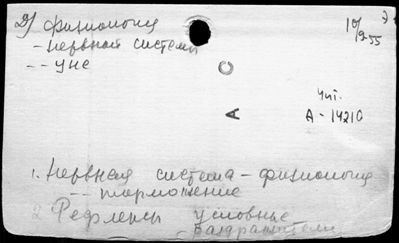 2) физиология
- нервной системы
-- УНС
10/9 55
Чит.
A - 14210
1. Нервная система - физиология
-- торможение
2. Рефлексы условные
- раздражители